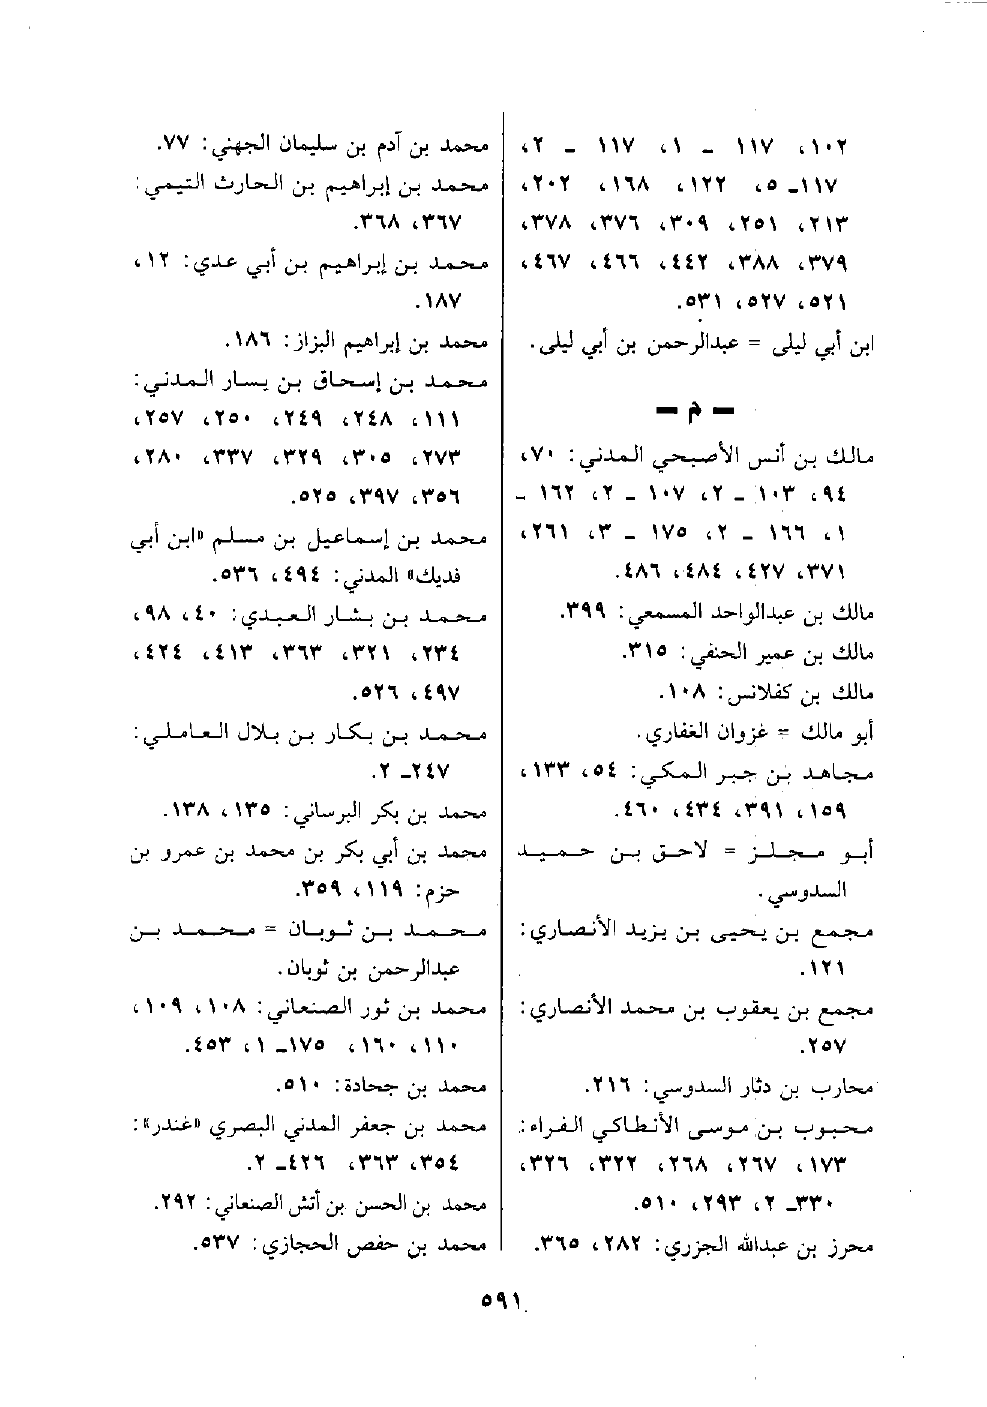 ١٠٢، ١١٧ ـ ١، ١١٧ ـ ٢،
١١٧ـ ٥، ١٢٢، ١٦٨، ٢٠٢،
٢١٣، ٢٥١، ٣٠٩، ٣٧٦، ٣٧٨،
٣٧٩، ٣٨٨، ٤٤٢، ٤٦٦، ٤٦٧،
٥٢١، ٥٢٧، ٥٣١.
ابن أبي ليلى = عبدالرحمن بن أبي ليلى.
ـ م ـ
مالك بن أنس الأصبحي المدني: ٧٠،
٩٤، ١٠٣ ـ ٢، ١٠٧ ـ ٢، ١٦٢ ـ
١، ١٦٦ ـ ٢، ١٧٥ ـ ٣، ٢٦١،
٣٧١، ٤٢٧، ٤٨٤، ٤٨٦.
مالك بن عبدالواحد المسمعي: ٣٩٩.
مالك بن عمير الحنفي: ٣١٥.
مالك بن كفلانس: ١٠٨.
أبو مالك = غزوان الغفاري.
مجاهد بن جبر المكي: ٥٤، ١٣٣،
١٥٩، ٣٩١، ٤٣٤، ٤٦٠.
أبو مجلز = لاحق بن حميد
السدوسي.
مجمع بن يحيى بن يزيد الأنصاري:
١٢١.
مجمع بن يعقوب بن محمد الأنصاري:
٢٥٧.
محارب بن دثار السدوسي: ٢١٦.
محبوب بن موسى الأنطاكي الفراء:
١٧٣، ٢٦٧، ٢٦٨، ٣٢٢، ٣٢٦،
٣٣٠ـ ٢، ٢٩٣، ٥١٠.
محرز بن عبدالله الجزري: ٢٨٢، ٣٦٥.
محمد بن آدم بن سليمان الجهني: ٧٧.
محمد بن إبراهيم بن الحارث التيمي:
٣٦٧، ٣٦٨.
محمد بن إبراهيم بن أبي عدي: ١٢،
١٨٧.
محمد بن إبراهيم البزاز: ١٨٦.
محمد بن إسحاق بن يسار المدني:
١١١، ٢٤٨، ٢٤٩، ٢٥٠، ٢٥٧،
٢٧٣، ٣٠٥، ٣٢٩، ٣٣٧، ٢٨٠،
٣٥٦، ٣٩٧، ٥٢٥.
محمد بن إسماعيل بن مسلم «ابن أبي
فديك» المدني: ٤٩٤، ٥٣٦.
محمد بن بشار العبدي: ٤٠، ٩٨،
٢٣٤، ٣٢١، ٣٦٣، ٤١٣، ٤٢٤،
٤٩٧، ٥٢٦.
محمد بن بكار بن بلال العاملي:
٢٤٧ـ ٢.
محمد بن بكر البرساني: ١٣٥، ١٣٨.
محمد بن أبي بكر بن محمد بن عمرو بن
حزم: ١١٩، ٣٥٩.
محمد بن ثوبان = محمد بن
عبدالرحمن بن ثوبان.
محمد بن ثور الصنعاني: ١٠٨، ١٠٩،
١١٠، ١٦٠، ١٧٥ـ ١، ٤٥٣.
محمد بن جحادة: ٥١٠.
محمد بن جعفر المدني البصري «غندر»:
٣٥٤، ٣٦٣، ٤٢٦ـ ٢.
محمد بن الحسن بن أتش الصنعاني: ٢٩٢.
محمد بن حفص الحجازي: ٥٣٧.
٥٩١